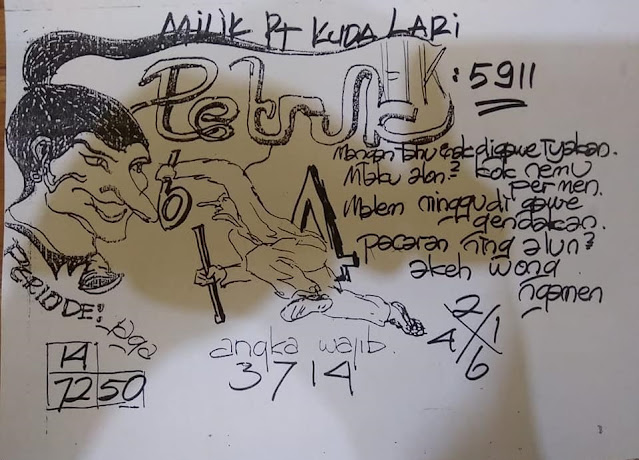 MILIK Pt KUDA LARI
Petruk
HK : 5911
Mangan tahu gak digawe tyakan.
Mlaku alon² kok nemu
permen.
Malem minggu digawe
gendakan.
pacaran ning alun²
akeh wong
ngamen
6
4
PERIODE:
14
72 50
angka wajib.
3714
2
4 1
6